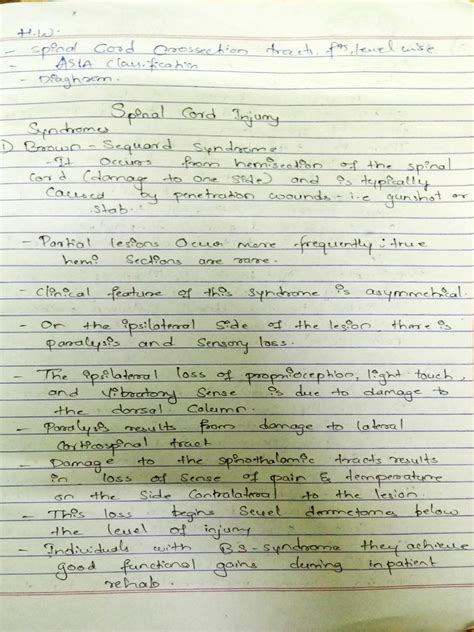 H.W.
- Spinal Cord Crossection tracts, fns, level wise
- ASIA Classification
- Diaghram.
Spinal Cord Injury
Syndromes
1) Brown - Sequard Syndrome:
- It occurs from hemisection of the spinal
cord (damage to one side) and is typically
caused by penetration wounds - i.e gunshot or
stab.
- Partial lesions occur more frequently; true
hemi sections are rare.
- Clinical feature of this syndrome is asymmetrical.
- On the ipsilateral side of the lesion, there is
paralysis and sensory loss.
- The ipsilateral loss of proprioception, light touch,
and vibratory sense is due to damage to
the dorsal column.
- Paralysis results from damage to lateral
corticospinal tract
- Damage to the spinothalamic tracts results
in loss of sense of pain & temperature
on the side contralateral to the lesion.
- This loss begins sevel dermetomes below
the level of injury
- Individuals with BS-syndrome they achieve
good functional gains during inpatient
rehab.